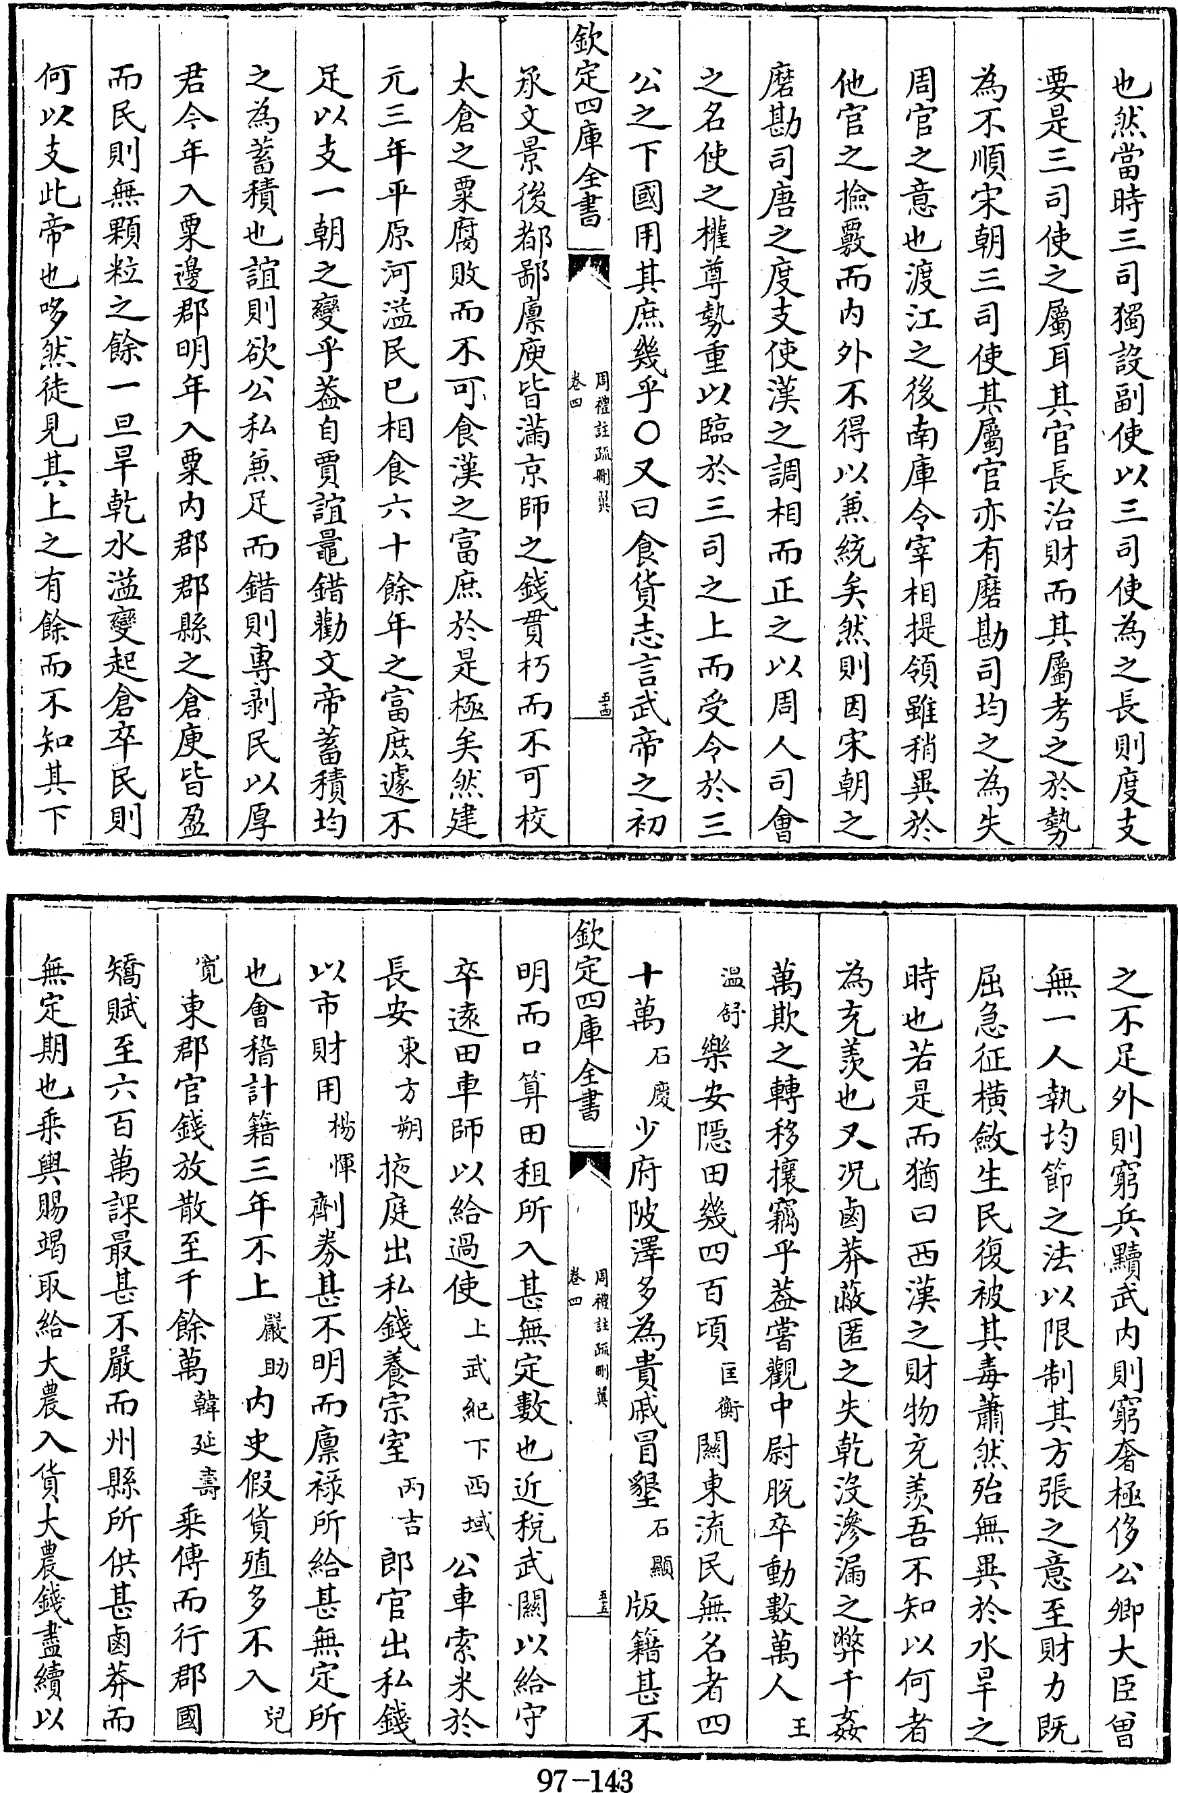 也然當時三司獨設副使以三司使為之長則度支
要是三司使之屬耳其官長治財而其屬考之於勢
為不順宋朝三司使其屬官亦有磨勘司均之為失
周官之意也渡江之後南庫令宰相提領雖稍異於
他官之撿覈而内外不得以兼統矣然則因宋朝之
磨勘司唐之度支使漢之調相而正之以周人司會
之名使之權尊勢重以臨於三司之上而受令於三
公之下國用其庶幾乎〇又曰食貨志言武帝之初
欽定四庫全書 周禮註疏刪翼 卷四 五十四
承文景後都鄙廪庾皆滿京師之錢貫朽而不可校
太倉之粟腐敗而不可食漢之富庶於是極矣然建
元三年平原河溢民已相食六十餘年之富庶遽不
足以支一朝之變乎葢自賈誼鼂錯勸文帝蓄積均
之為蓄積也誼則欲公私兼足而錯則專剥民以厚
君今年入粟邊郡明年入粟内郡郡縣之倉庾皆盈
而民則無顆粒之餘一旦旱乾水溢變起倉卒民則
何以支此帝也哆然徒見其上之有餘而不知其下
之不足外則窮兵黷武内則窮奢極侈公卿大臣曾
無一人執均節之法以限制其方張之意至財力既
屈急征橫斂生民復被其毒蕭然殆無異於水旱之
時也若是而猶曰西漢之財物充羨吾不知以何者
為充羨也又况鹵莽蔽匿之失乾沒滲漏之弊千姦
萬欺之轉移攘竊乎葢嘗觀中尉脱卒動數萬人王
温舒樂安隱田幾四百頃匡衡關東流民無名者四
十萬石慶少府陂澤多為貴戚冒墾石顯版籍甚不
欽定四庫全書 周禮註疏刪翼 卷四 五十五
明而口算田租所入甚無定數也近稅武關以給守
卒遠田車師以給過使上武紀下西域公車索米於
長安東方朔掖庭出私錢養宗室丙吉郎官出私錢
以市財用楊惲劑券甚不明而廪祿所給甚無定所
也會稽計籍三年不上嚴助内史假貸殖多不入兒
寛東郡官錢放散至千餘萬韓延壽乘傳而行郡國
矯賦至六百萬課最甚不嚴而州縣所供甚鹵莽而
無定期也乘輿賜竭取給大農入貨大農錢盡續以
97-143